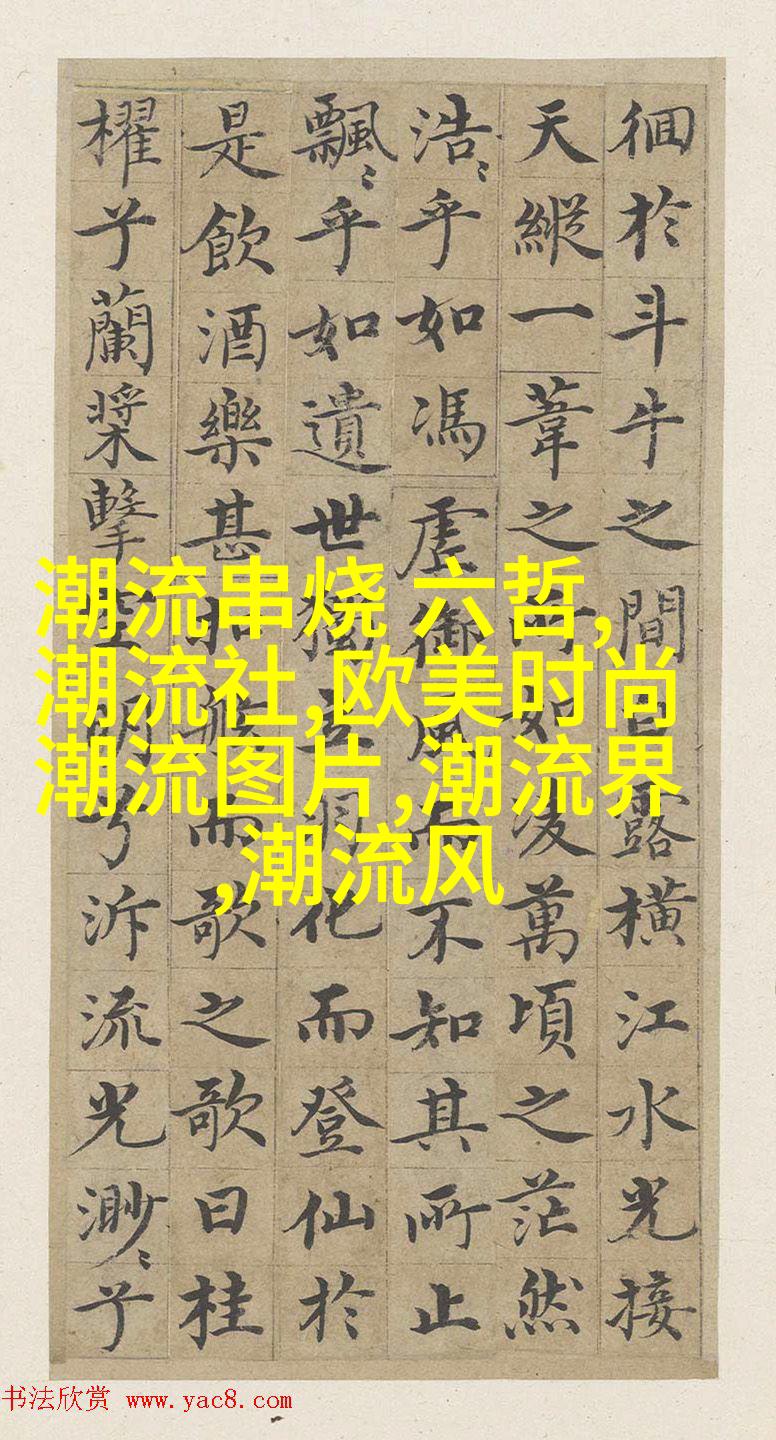 徊於斗牛之間白露橫江水光接
天縱一葦之所如凌萬頃之茫然
浩〻乎如馮虛御風而不知其所止
飄〻乎如遺世獨立羽化而登仙於
是飲酒樂甚扣舷而歌之歌曰桂
櫂兮蘭槳擊空明兮泝流光渺〻兮
潮流串烧 六哲,
潮流社,欧美时尚
潮流图片,潮流界
,潮流风
书法欣赏 www.yac8.com